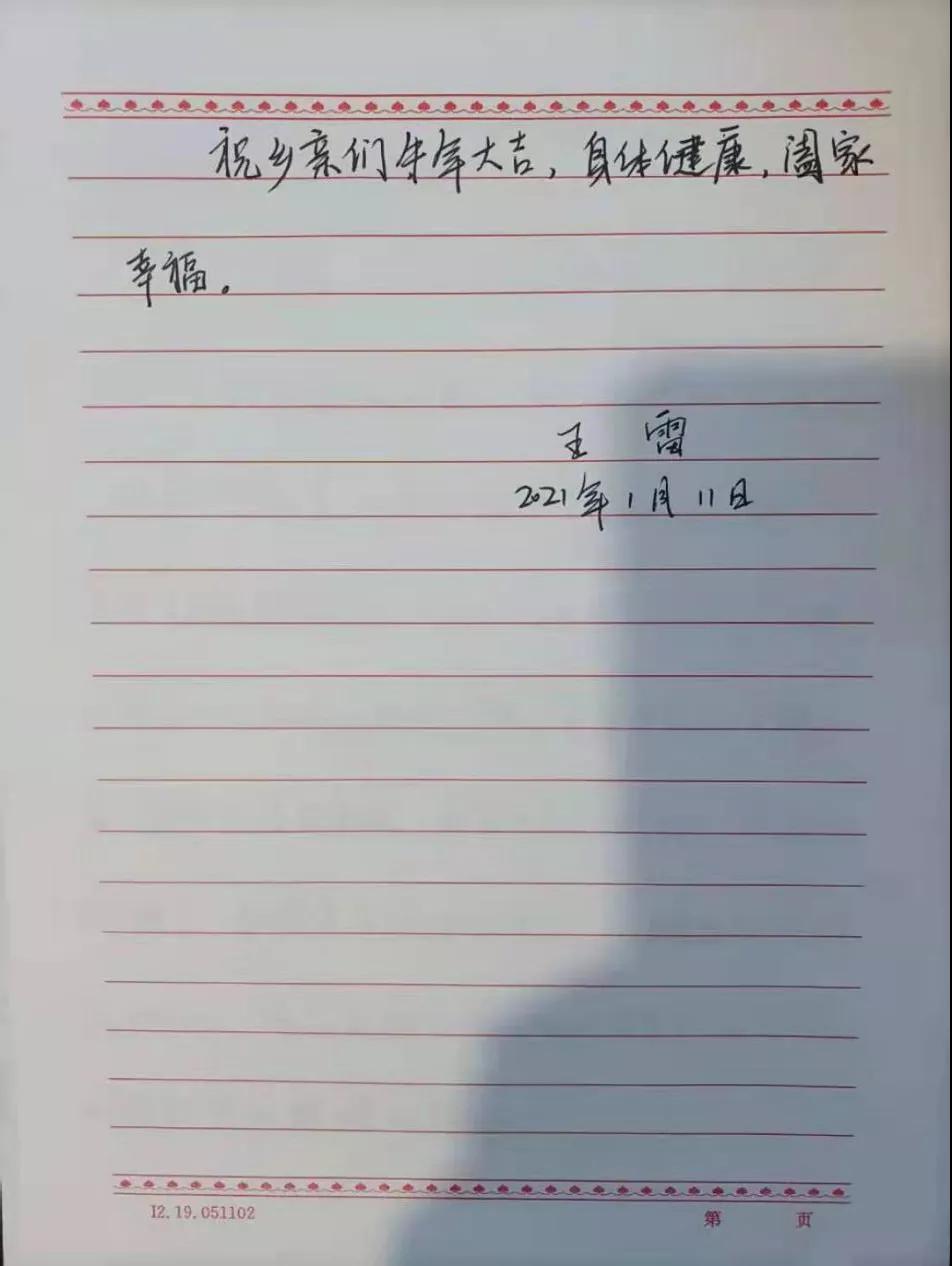 祝乡亲们牛年大吉，身体健康，阖家
幸福。
王 雷
2021年1月11日
I2.19.051102
第 页